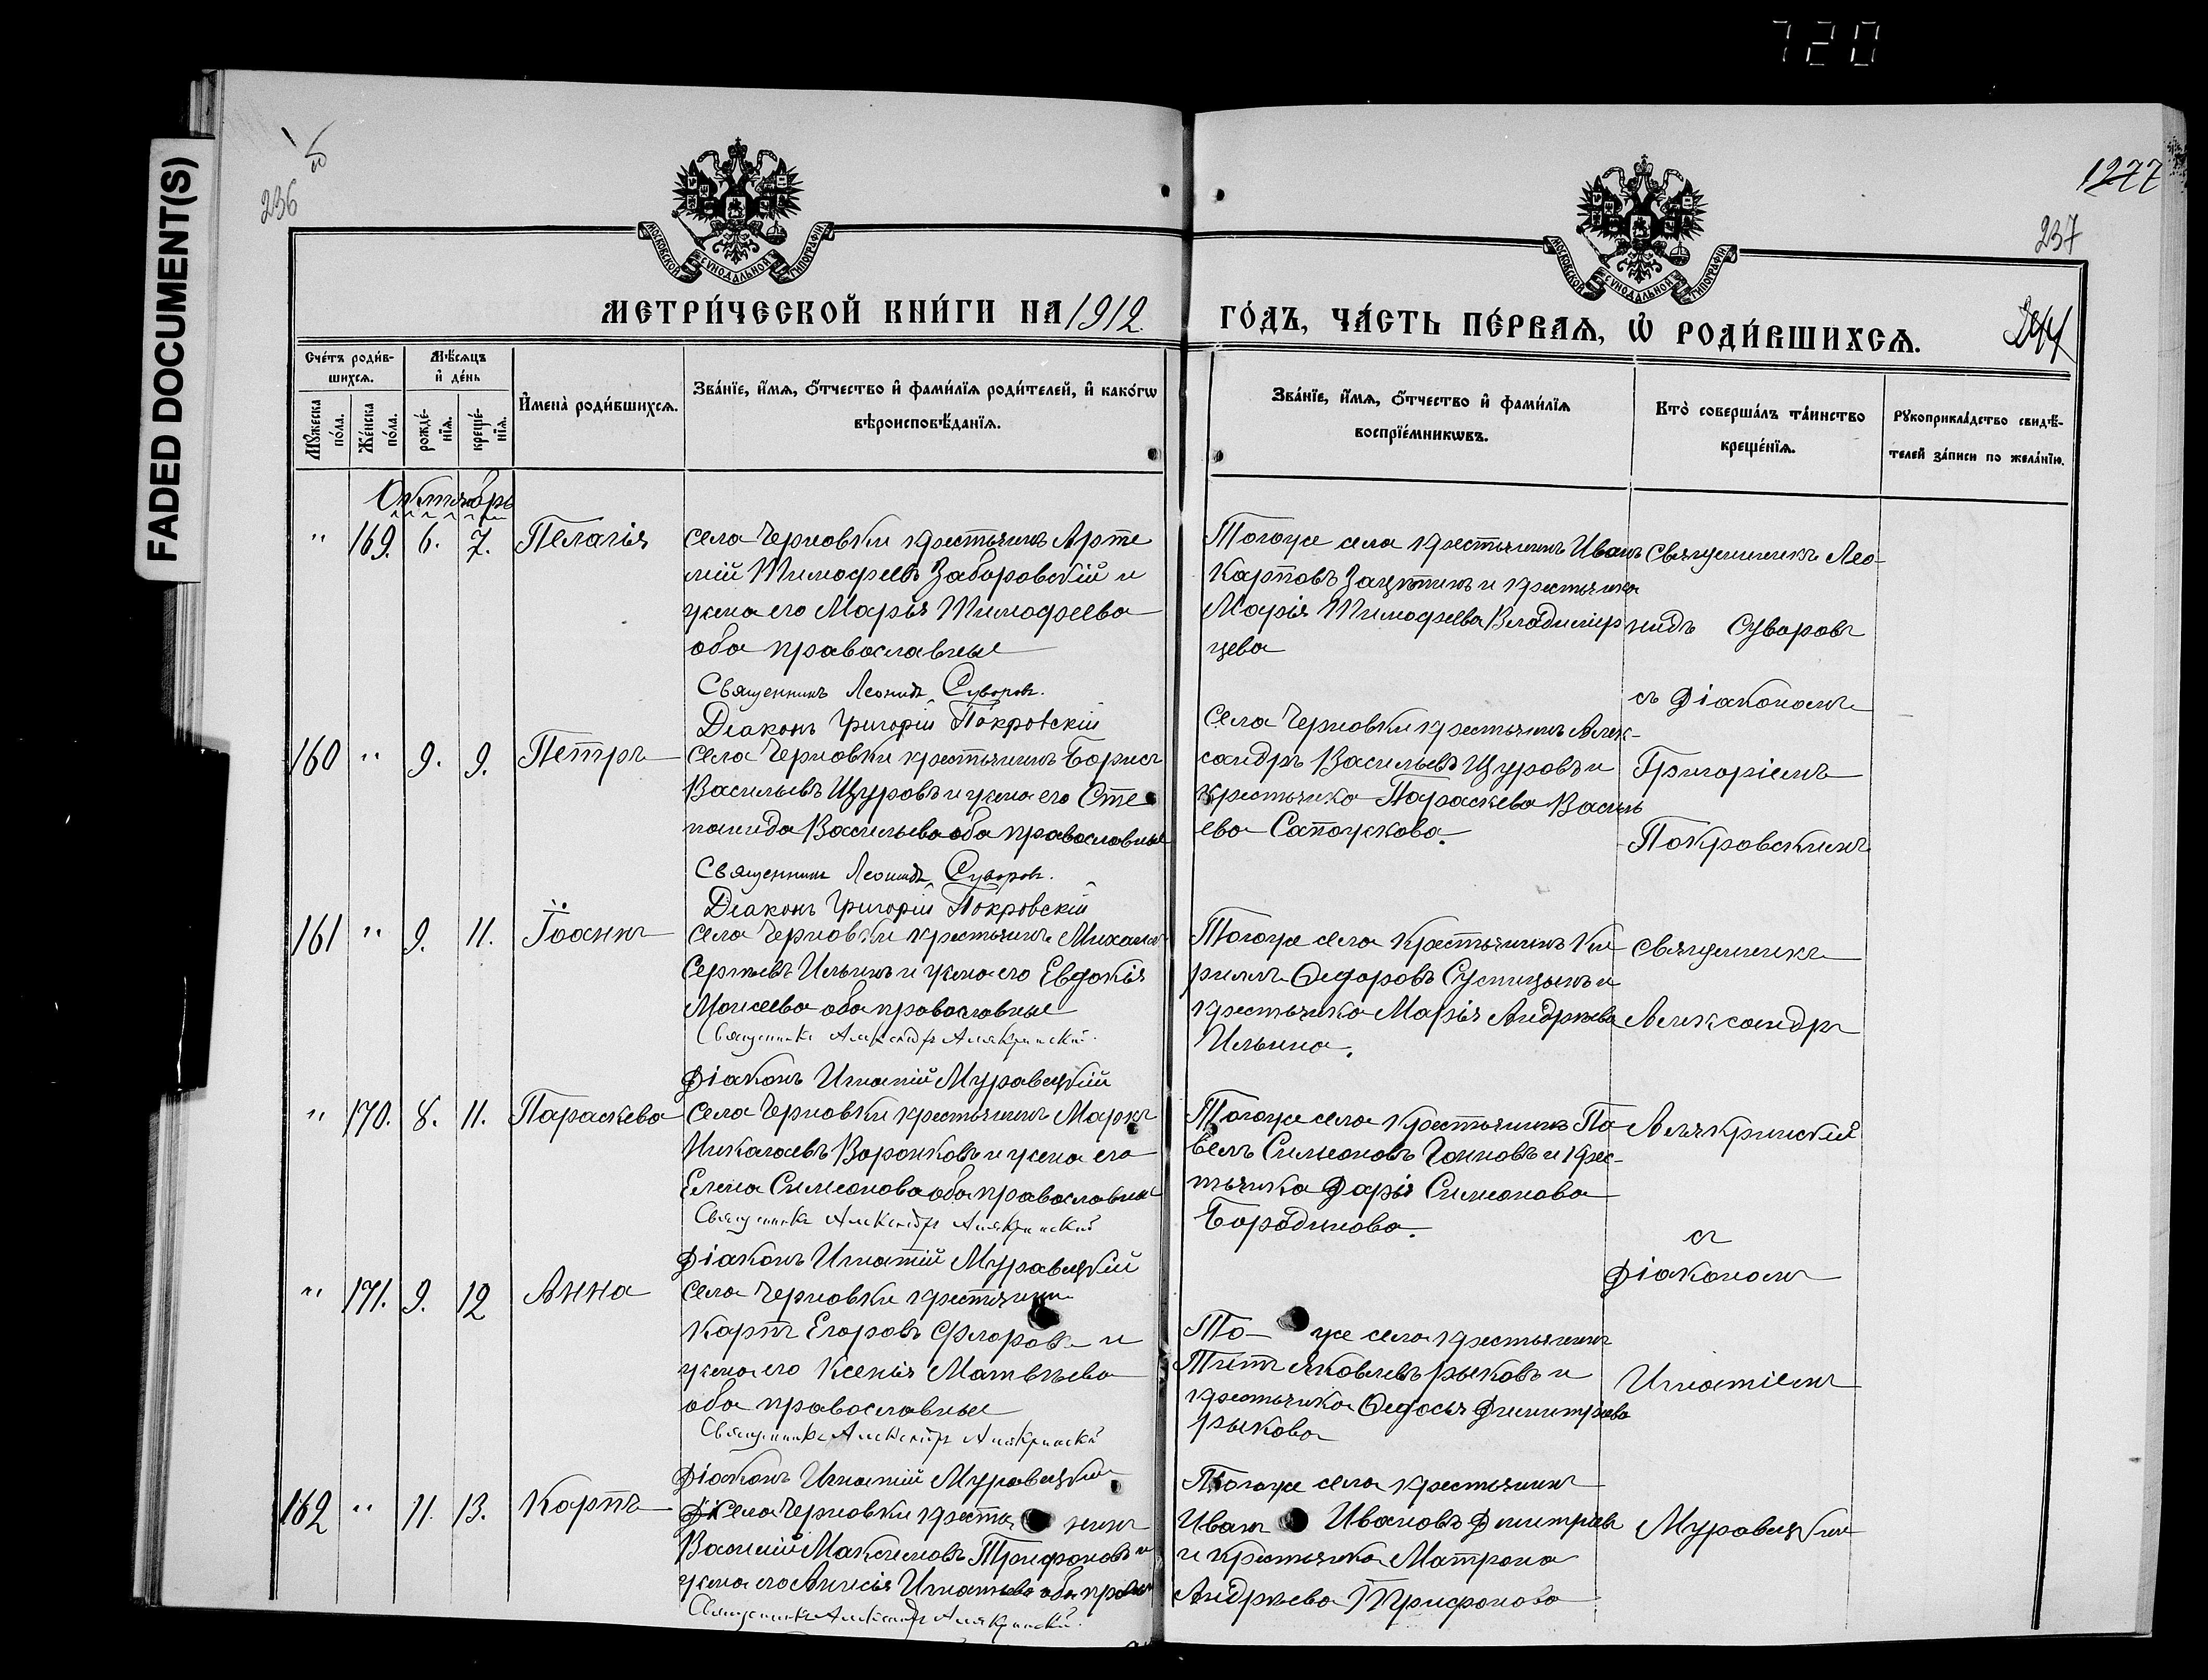 720
FADED DOCUMENT(S)
236
1277
237
МОСКОВСКОЙ СѴНОДАЛЬНОЙ ТИПОГРАФІИ
МОСКОВСКОЙ СѴНОДАЛЬНОЙ ТИПОГРАФІИ
МЕТРИ́ЧЕСКОЙ КНИ́ГИ НА 1912
ГО́ДЪ, ЧА́СТЬ ПЕ́РВАЯ, Ѡ РОДИ́ВШИХСЯ.
Сче́тъ роди́в-
шихся.
Мѣ́сяцъ
и҆ де́нь
Мꙋ́жеска
по́ла.
Же́нска
по́ла.
рожде́-
нїя.
креще́-
нїя.
И҆мена̀ роди́вшихся.
Зва́нїе, и҆́мя, ѻ҆́тчество и҆ фами́лїя роди́телей, и҆ како́гѡ
вѣроисповѣ́данїя.
Зва́нїе, и҆́мя, ѻ҆́тчество и҆ фами́лїя
воспрїе́мникѡвъ.
Кто̀ соверша́лъ та́инство
креще́нїя.
Рꙋкоприкла́дство свидѣ́-
телей за́писи по жела́нїю.
Октябрь
" 169. 6. 7. Пелагія
села Черновки крестьянинъ Арте
мій Тимофеевъ Заборовскій и
жена его Марья Тимофеева
оба православные
Священникъ Леонидъ Суворовъ.
Діаконъ Григорій Покровскій
Тогоже села крестьянинъ Иванъ
Карповъ Зацепинъ и крестьянка
Марія Тимофеева Владимир
цева
священникъ Лео-
нидъ Суворовъ
съ Діакономъ
Григоріемъ
Покровскимъ
160 " 9. 9. Петръ
села Черновки крестьянинъ Борисъ
Васильевъ Щуровъ и жена его Сте
понида Васильева оба православные
Священникъ Леонидъ Суворовъ.
Діаконъ Григорій Покровскій
села Черновки крестьянинъ Алек-
сандръ Васильевъ Щуровъ и
крестьянка Параскева Василь
ева Сапожкова.
161 " 9. 11. Іоаннъ
села Черновки крестьянинъ Михаилъ
Сергѣевъ Ильинъ и жена его Евдокія
Моисеева оба православные
Священникъ Александръ Алякринскій.
Діаконъ Игнатій Муравецкій
Тогоже села крестьянинъ Ки
риллъ Ѳедоровъ и
крестьянка Марія Андреева
Ильина.
священникъ
Александръ
Алякринскій
съ
Діакономъ
Игнатіемъ
Муравецким
" 170. 8. 11. Параскева
села Черновки крестьянинъ Маркъ
Николаевъ Воронковъ и жена его
Елена Симеонова оба православные
Священникъ Александръ Алякринскій
Діаконъ Игнатій Муравецкій
Тогоже села крестьянинъ Па
велъ Симеоновъ и крес-
тьянка Дарья Симеонова
Бородинова.
" 171. 9. 12 Анна
села Черновки крестьянинъ
Карпъ Егоровъ Флоровъ и
жена его Ксенія Матвѣева
оба православные
Священникъ Александръ Алякринскій
Діаконъ Игнатій Муравецкій
То- же села крестьянинъ
Титъ Яковлевъ Рыковъ и
крестьянка Ѳедосья Димитріева
Рыкова
162 " 11. 13. Карпъ
села Черновки крестья нинъ
Василій Максимовъ Трифоновъ и
жена его Анисія Игнатьева оба прав
Священникъ Александръ Алякринскій.
Тогоже села крестьянинъ
Иванъ Ивановъ Димитріевъ
и крестьянка Матрона
Андреева Трифонова